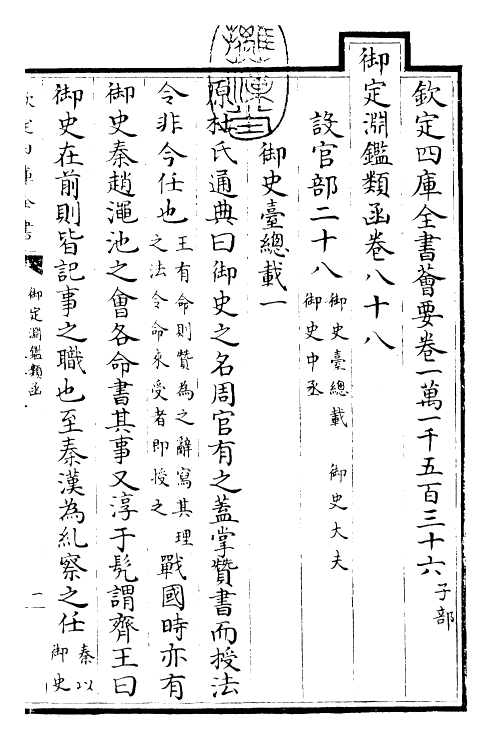 欽定四庫全書薈要卷一萬一千五百三十六 子部
御定淵鑑類函卷八十八
設官部二十八 御史臺總載 御史大夫
御史中丞
御史臺總載一
原杜氏通典曰御史之名周官有之蓋掌贊書而授法
令非今任也 王有命則贊為之辭寫其理
之法令命來受者即授之 戰國時亦有
御史秦趙澠池之會各命書其事又淳于髠謂齊王曰
御史在前則皆記事之職也至秦漢為糺察之任 秦以
御史
欽定四庫全書
御定淵鑑類函
一